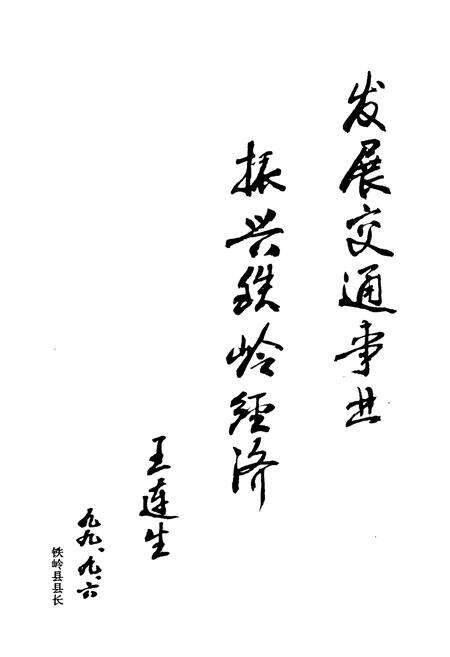 发展交通事业
振兴铁岭经济
王连生
九九、九、六
铁岭县县长